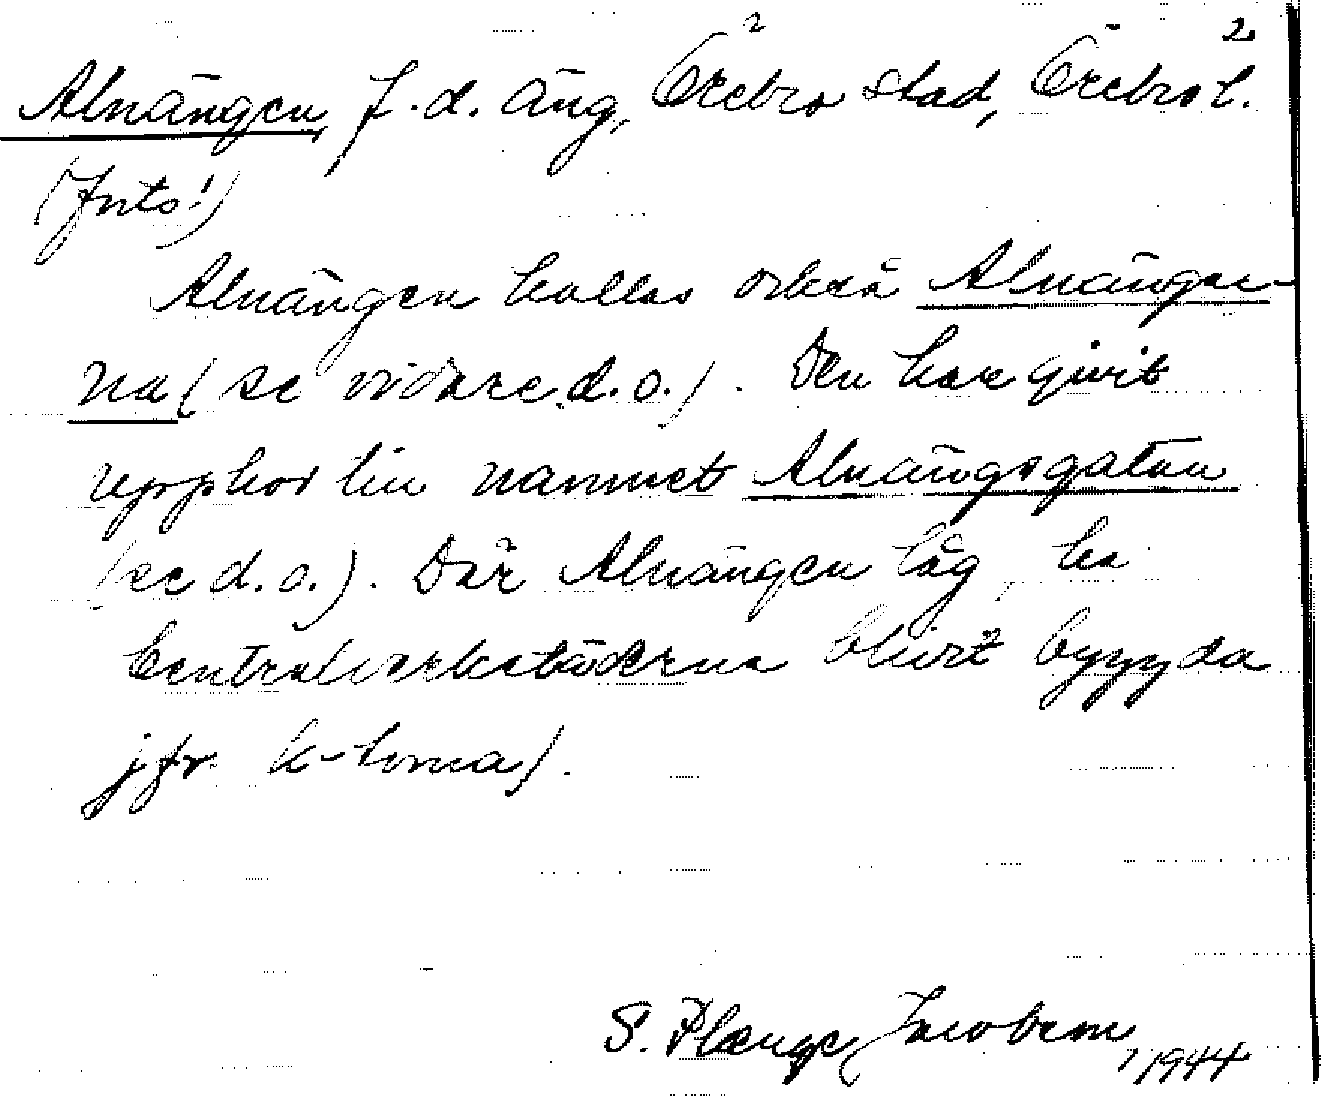 2
Alnängen, f.d. äng, Örebro stad, Örebro l.
(Forts!)
Alnängen kallas också Alnänger-
na (se vidare d.o.). Den har givit
upphov till namnet Alnängsgatan
(se d.o.). Där Alnängen låg, ha
Centralverkstäderna blivit byggda
jfr k-torna).
S. Plænge Jacobson, 1944